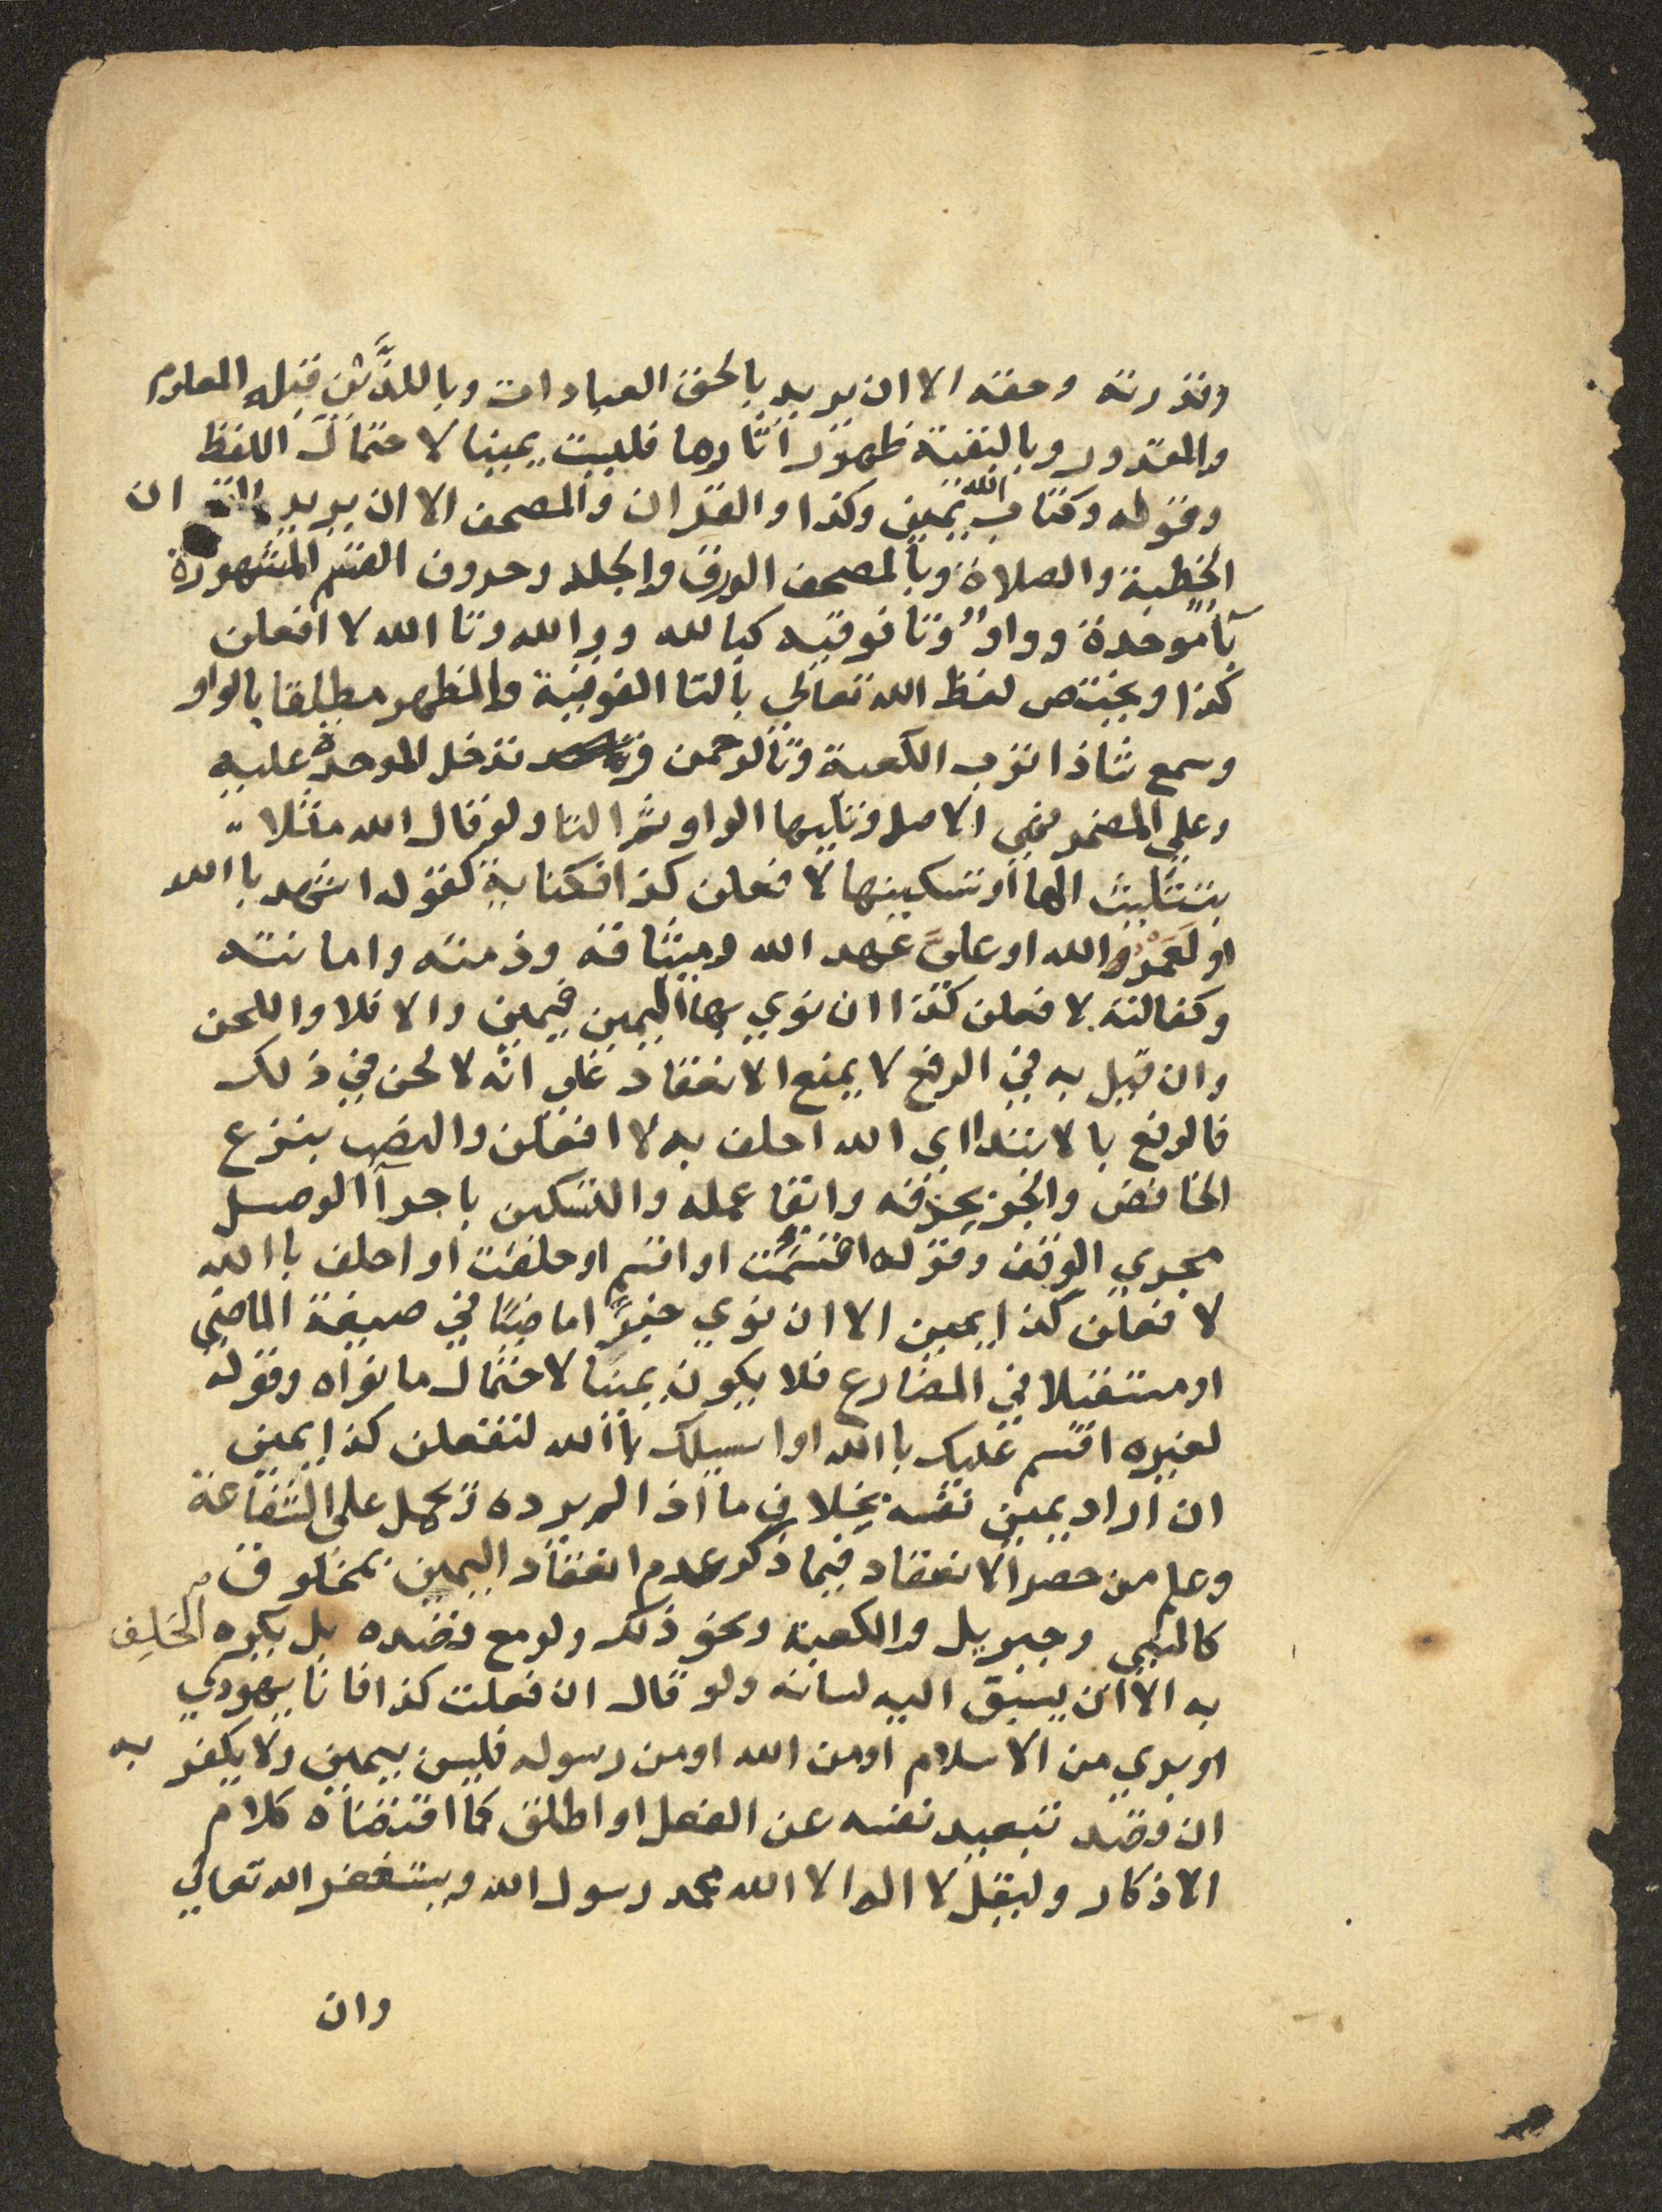 وقدرته وحقه الا ان يريد بالحق العبادات وباللذَين قبله المعلوم
والمقدور وبالبقية ظهور آثارها فليست يمينا لاحتمال اللفظ
وقوله وكتاب الله يمين وكذا والقران والمصحف الا ان يريد بالقران
الخطبة والصلاة وبالمصحف الورق والجلد وحروف القسم المشهورة
بآ موحدة وواو وتا فوقيه كبالله ووالله وتا الله لا افعلن
كذا ويختص لفظ الله تعالي بالتا الفوقية والمظهر مطلقا بالواو
وسمع شاذا ترب الكعبة وتالرحمن وتدخل الموحدة عليه
وعلي المضمر فهي الاصل وتليها الواو ثم التا ولو قال الله مثلا
بتثليث الها او تسكينها لا فعلن كذا فكناية كقوله اشهد باالله
او لَعَمْرُ الله او عليَّ عهد الله وميثاقه وذمته وامانته
وكفالته لا فعلن كذا ان نوي بها اليمين فيمين والا فلا واللحن
وان قيل به في الرفع لا يمنع الانعقاد علي انه لا لحن في ذلك
فالرفع بالابتدا اي الله احلف به لا افعلن والنصب بنزع
الخافض والجر بحذفه وابقا عمله والتسكين باجرآ الوصل
مجري الوقف وقوله اقسمت او اقسم او حلفت او احلف باالله
لا فعلن كذا يمين الا ان نوي خبرًا ماضيًا في صيغة الماضي
او مستقبلا في المضارع فلا يكون يمينا لاحتمال ما نواه وقوله
لغيره اقسم عليك باالله او اسيلك باالله لتفعلن كذا يمين
ان اراد يمين نفسه بخلاف ما اذا لم يرده ويحمل على الشفاعة
وعلم من حصر الانعقاد فيما ذكر عدم انعقاد اليمين بمخلوق
كالنبي وجبريل والكعبة ونحو ذلك ولو مع قصده بل يكره الحَلِف
به الا ان يسبق اليه لسانه ولو قال ان فعلت كذا فانا يهودي
او بري من الاسلام او من الله او من رسوله فليس بيمين ولا يكفر به
ان قصد تبعيد نفسه عن الفعل او اطلق كما اقتضاه كلام
الاذكار وليقل لا اله الا الله محمد رسول الله ويستغفر الله تعالي
وان